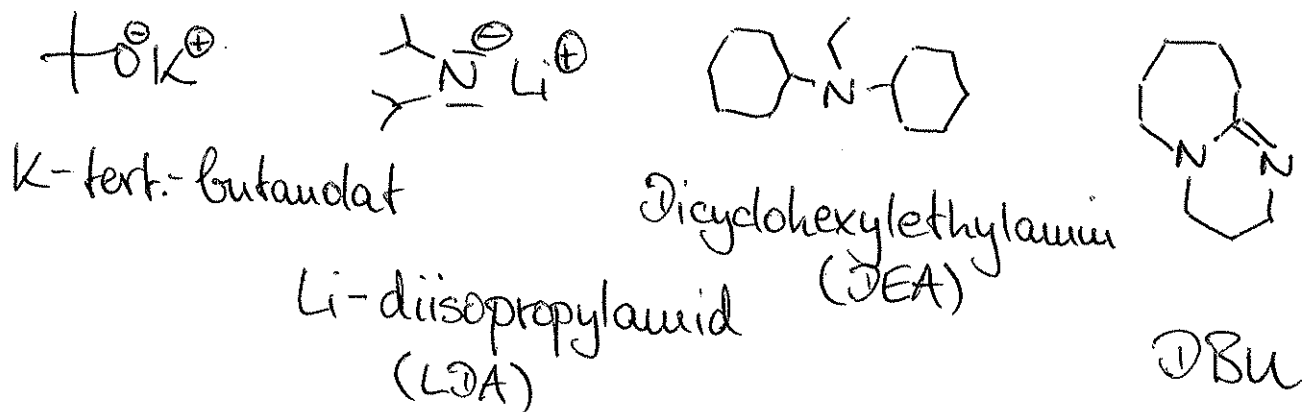 O⊖ K⊕
N⊖ Li⊕
N
N N
K-tert.-butanolat
Dicyclohexylethylamin
(DEA)
Li-diisopropylamid
(LDA)
DBU